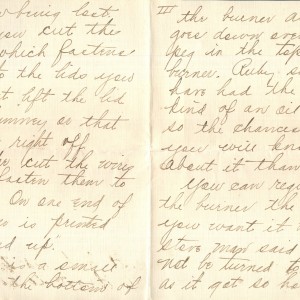 being lost.
you cut the
which fastens
to the lids you
lift the lid
so that
right off
cut the wires
fasten them to
On one end of
is printed
up."
is a small
the bottom of
III
the burner a
goes down over
peg in the top
burner. Ruby s
have had the
kind of an oil
so the chances
you will know
about it than
you can reg
the burner the
you want it
stove man said
not be turned
as it get so h